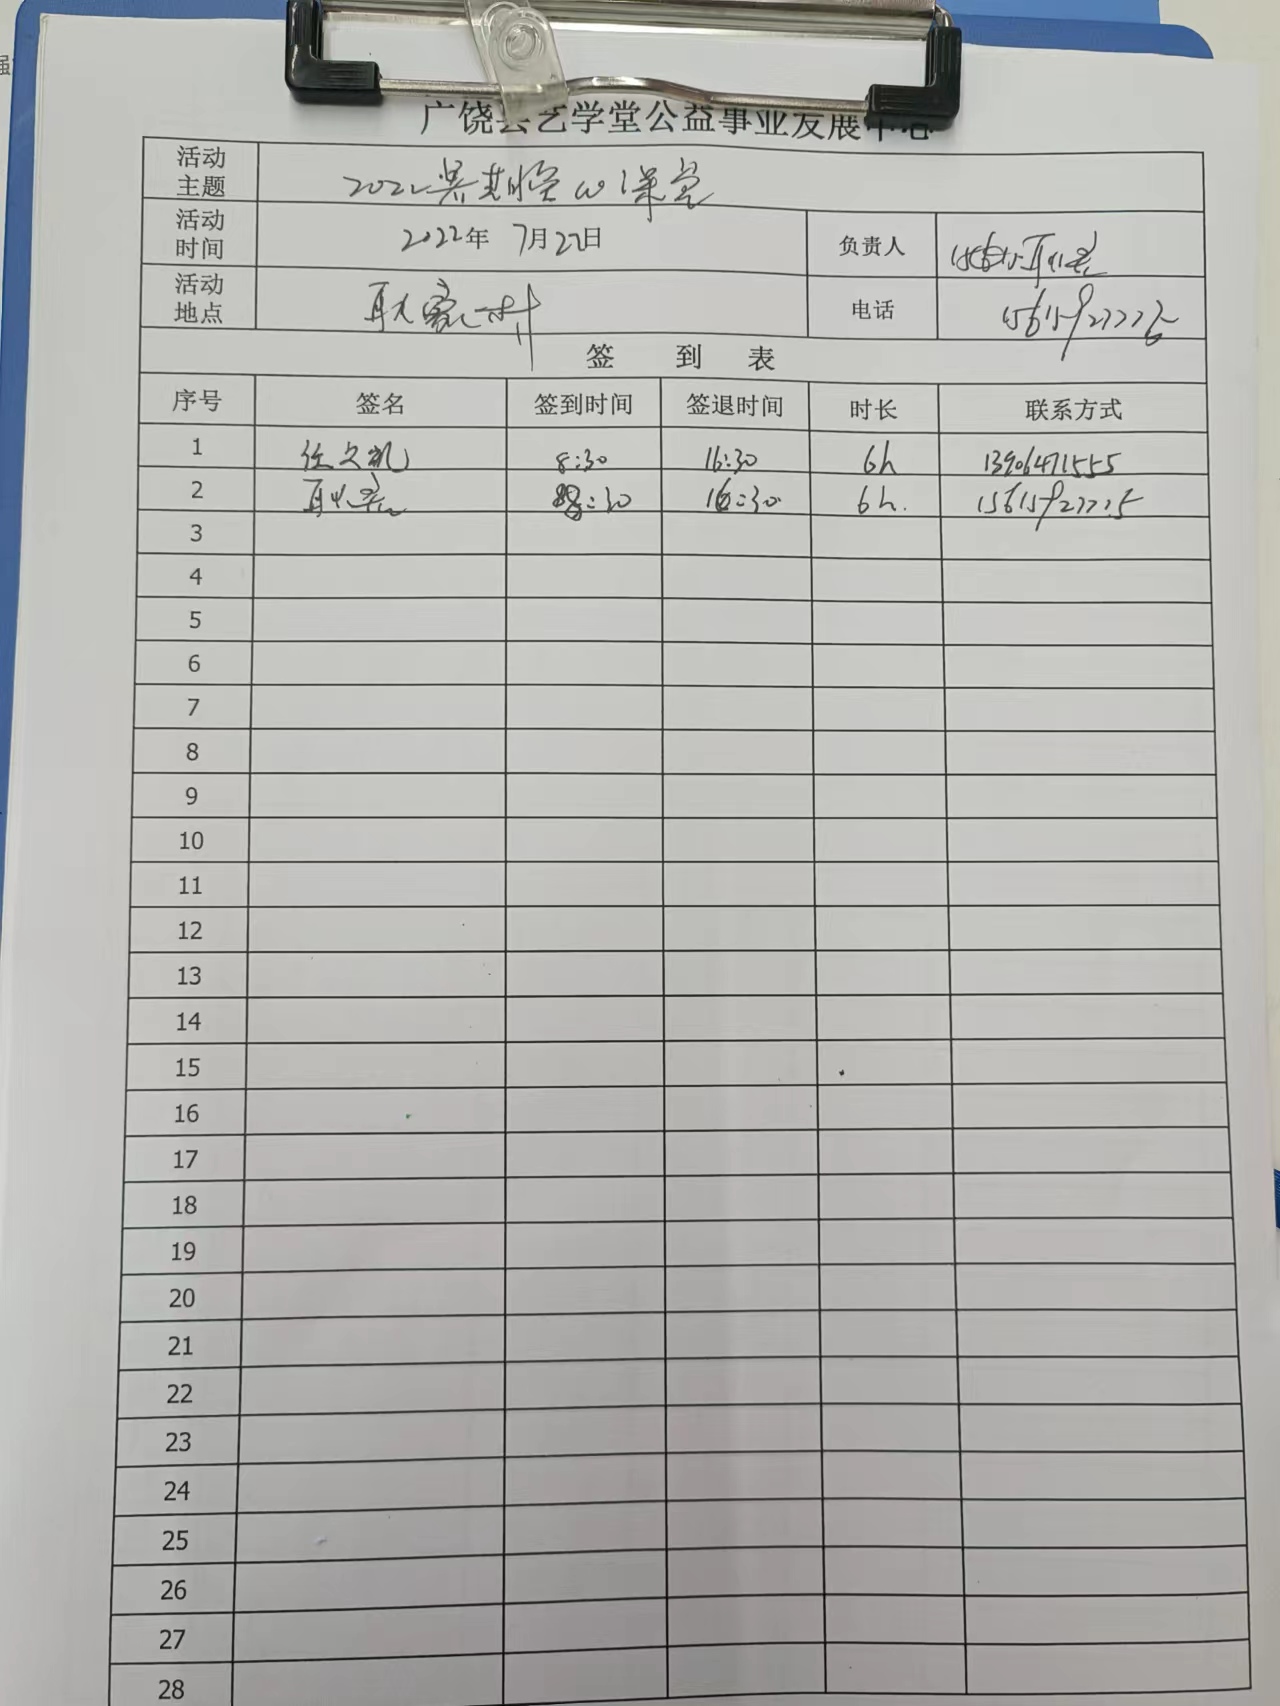 广饶县艺学堂公益事业发展中心
活动主题 2022暑期 课堂
活动时间 2022年 7月22日 负责人
活动地点 村 电话
签 到 表
序号 签名 签到时间 签退时间 时长 联系方式
1 任文凯 8:30 16:30 6h 13906471555
2 8:30 16:30 6h.
3
4
5
6
7
8
9
10
11
12
13
14
15
16
17
18
19
20
21
22
23
24
25
26
27
28